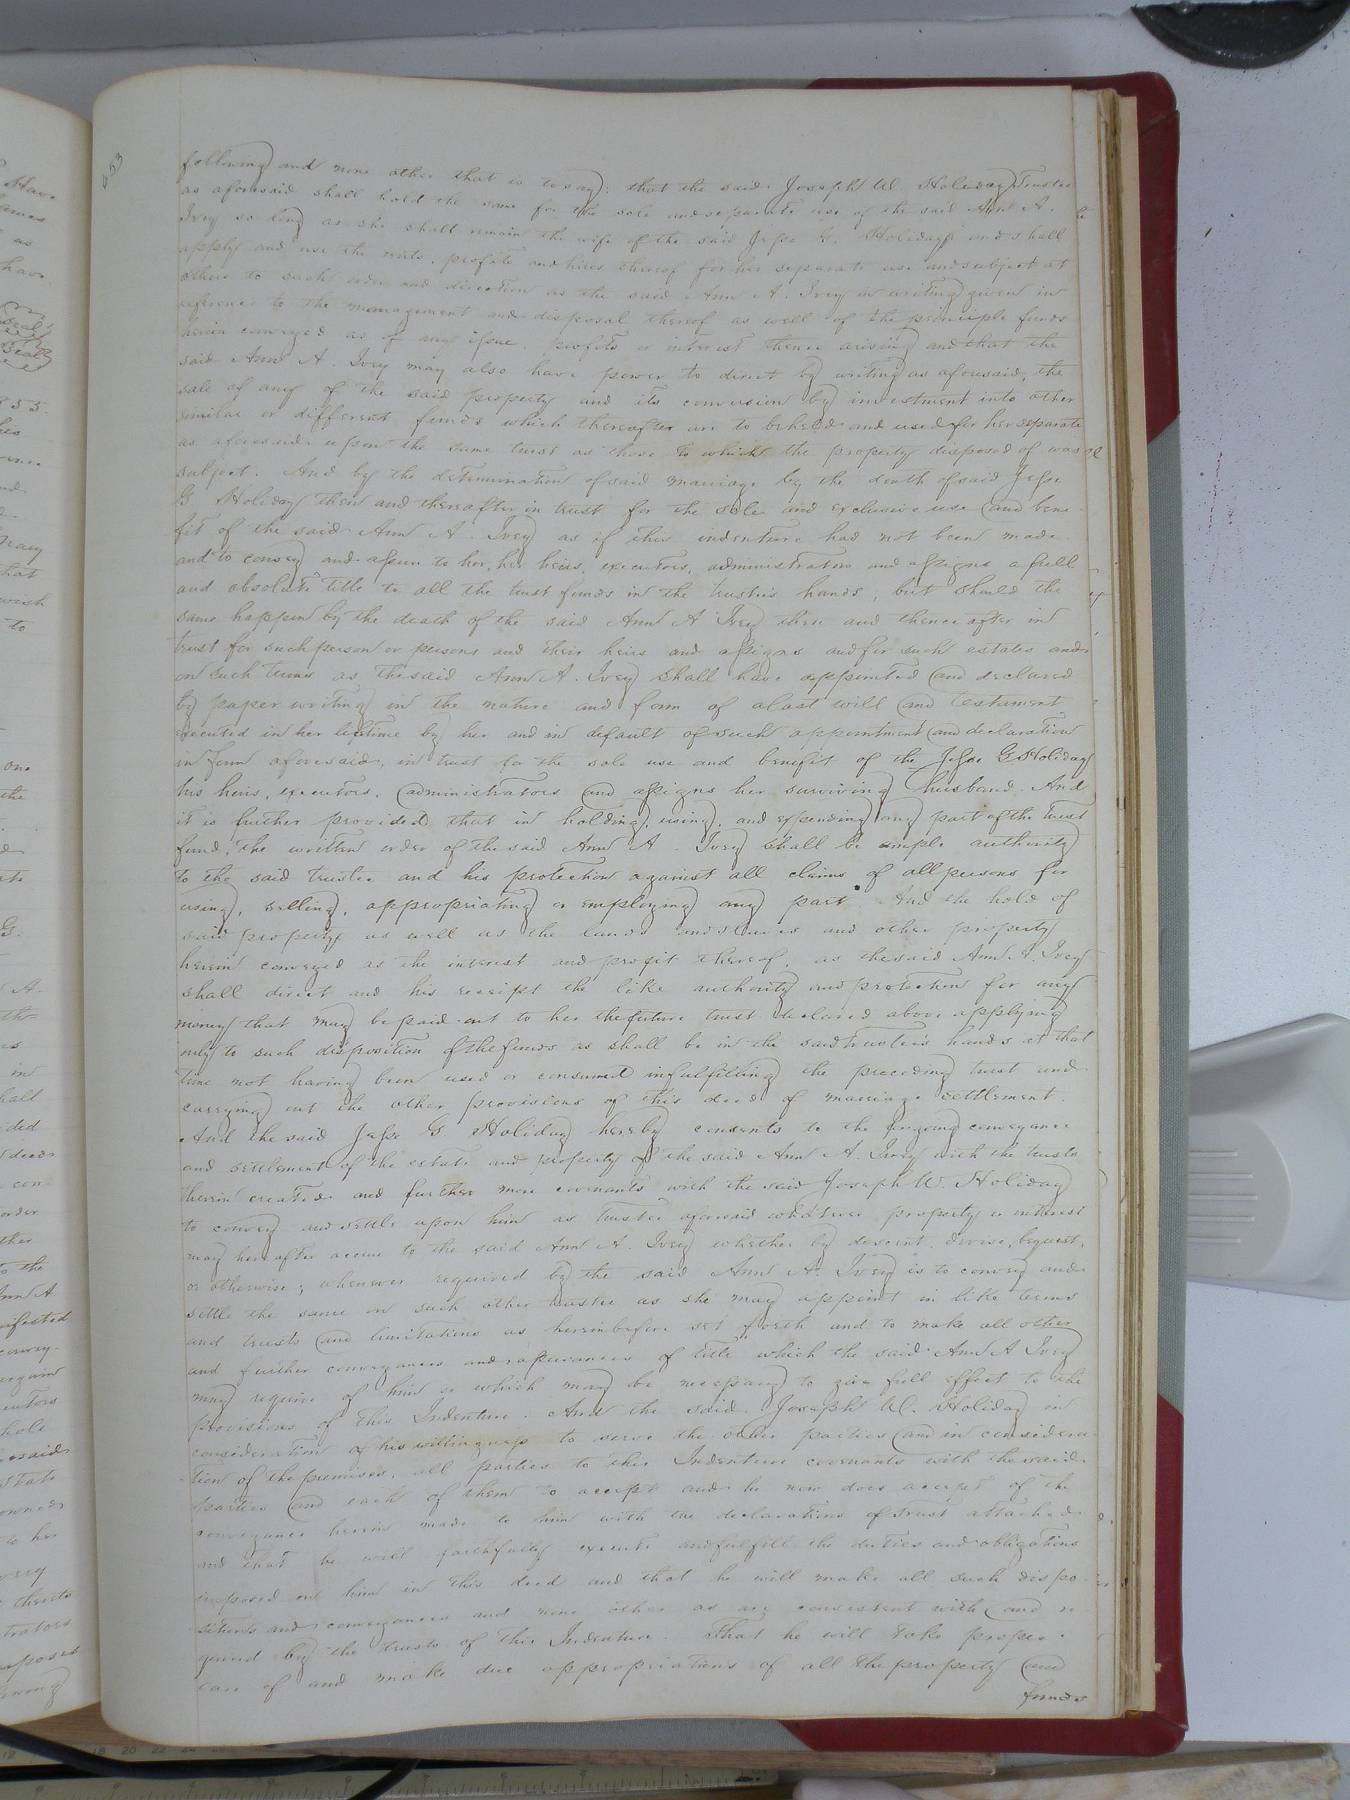 653
following and none other that is to say; that the said Joseph W. Holiday Trustee
as aforesaid shall hold the same for the sole and separate use of the said Ann A.
Ivey so long as she shall remain the wife of the said Jesse G. Holiday and shall
apply and use the rents, profits and hires thereof for her separate use and subject at
to such order and direction as the said Ann A. Ivey in writing given in
reference to the management and disposal thereof as well of the principle funds
herein conveyed as of any issue, profits or interest thence arising and that the
said Ann A. Ivey may also have power to direct by writing as aforesaid, the
sale of any of the said property and its conversion by investment into other
similar or different funds which thereafter are to be held and used for her separate
as aforesaid upon the same trust as those to which the property disposed of was
subject. And by the determination of said marriage by the death of said Jesse
G Holiday then and thereafter in trust for the sole and exclusive use and bene
fit of the said Ann A. Ivey as if this indenture had not been made
and to convey and assure to her, her heirs, executors, administrators and assigns a full
and absolute title to all the trust funds in the trustees hands, but should the
same happen by the death of the said Ann A Ivey then and thence after in
trust for such person or persons and their heirs and assigns and for such estates and
on such terms as the said Ann A. Ivey shall have appointed and declared
by paper writing in the nature and form of a last will and testament
executed in her lifetime by her and in default of such appointment and declaration
in form aforesaid, in trust for the sole use and benefit of the Jesse G Holiday
his heirs, executors, administrators and assigns her surviving husband. And
it is further provided that in holding, using, and expending any part of the trust
fund, the written order of the said Ann A. Ivey shall be ample authority
to the said trustee and his protection against all claims of all persons for
using, selling, appropriating or employing any part. And the hold of
said property as well as the lands and slaves and other property
herein conveyed as the interest and profit thereof, as the said Ann A. Ivey
shall direct and his receipt the like authority and protection for any
money that may be paid out to her the future trust declared above applying
only to such disposition of the funds as shall be in the said trustees hands at that
time not having been used or consumed in fulfilling the preceding trust and
carrying out the other provisions of this deed of marriage settlement.
And the said Jesse G. Holiday hereby consents to the forgoing conveyance
and settlement of the estate and property of the said Ann A. Ivey with the trusts
therein created and further more covenants with the said Joseph W. Holiday
to convey and settle upon him as trustee aforesaid whatever property or interest
may hereafter accrue to the said Ann A. Ivey whether by descent, devise, bequest,
or otherwise; whenever required by the said Ann A. Ivey is to convey and
settle the same on such other trustee as she may appoint in like terms
and trusts and limitations as hereinbefore set forth and to make all other
and further conveyances and assurances of title which the said Ann A Ivey
may require of him or which may be necessary to give full effect to the
provisions of this Indenture. And the said Joseph W. Holiday in
consideration of his willingness to serve the other parties and in considera
tion of the premises, all parties to this Indenture covenants with the said
parties and each of them to accept and he now does accept of the
conveyance herein made to him with the declarations of trust attached
and that he will faithfully execute and fulfill the duties and obligations
imposed on him in this deed and that he will make all such dispo
sitions and conveyances and none other as are consistent with and re
quired by the trusts of this Indenture. That he will take proper
care of and make due appropriations of all the property and
funds